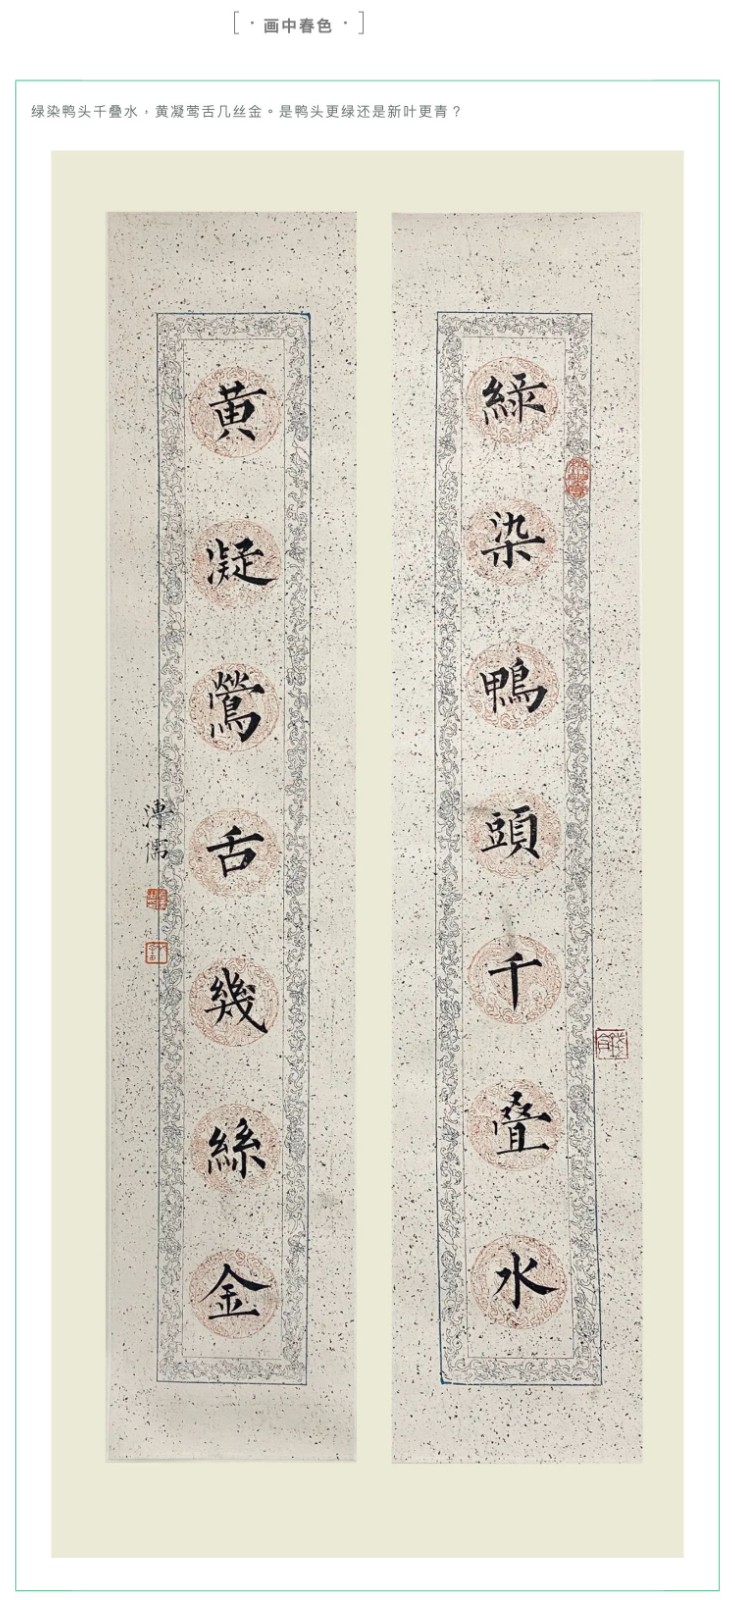 [ · 画中春色 · ]
绿染鸭头千叠水，黄凝莺舌几丝金。是鸭头更绿还是新叶更青？
綠染鴨頭千疊水
黄凝鶯舌幾絲金
溥儒